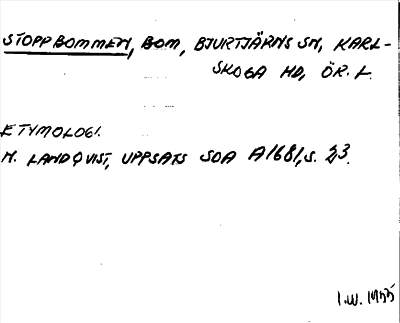 STOPPBOMMEN, BOM, BJURTJÄRNS SN, KARL-
SKOGA HD, ÖR. L.
ETYMOLOGI.
M. LANDQVIST, UPPSATS SOA A1681, S. 23.
I.W. 1955